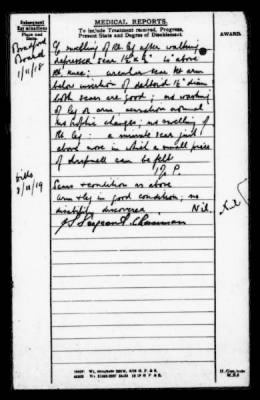 Subsequent
Examinations
Place and
Date.
MEDICAL REPORTS.
To include Treatment received, Progress,
Present State and Degree of Disablement.
AWARD.
Bradford
Board
1/11/18
of swelling of the leg after walking
depressed scar 1½" x ½" 10" above
the knee; circular scar rt arm
below insertion of deltoid ½" diam:
both scars are good; no wasting
of leg or arm sensation normal
no trophic changes; no swelling of
the leg: a minute scar just
above nose in which a small piece
of shrapnell can be felt
17 P.
8/11/19
Scars & condition as above
arm & leg in good condition; no
disability discovered. Nil.
Nil
Chairman